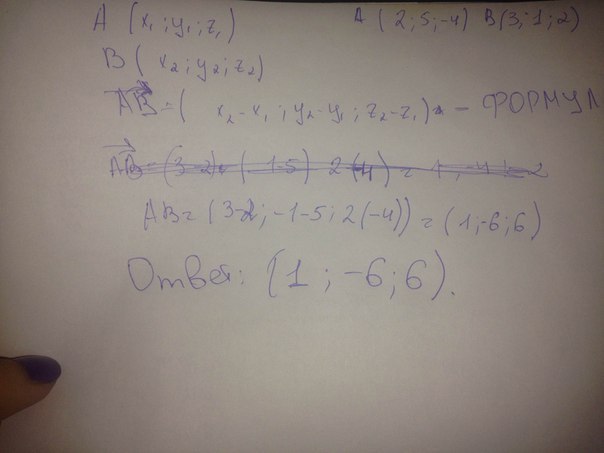 A (x₁; y₁; z₁) A (2; 5; -4) B(3; 1; 2)
B (x₂; y₂; z₂)
AB = (x₂-x₁; y₂-y₁; z₂-z₁) - ФОРМУЛ
AB = (3-2; -1-5; 2(-4)) = (1; -6; 6)
Ответ: (1; -6; 6).